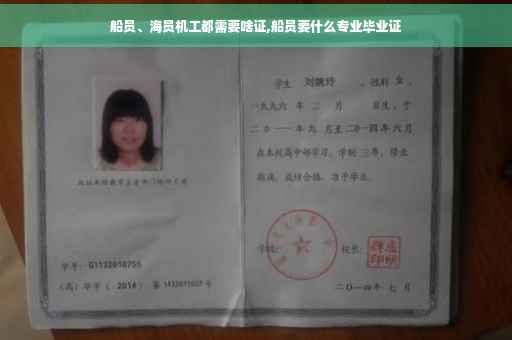 船员、海员机工都需要啥证,船员要什么专业毕业证
学生 刘婉玲 , 性别 女 ,
一九九六 年 二 月 日生, 于
二〇一一 年 九 月至 二〇一四 年 六 月
在本校高中部学习, 学制 三 年, 修业
期满, 成绩合格, 准予毕业。
学校: 校长:
学号: G1132010755
(高) 毕字 ( 2014 ) 第 1432011027 号
二〇一四 年 七 月